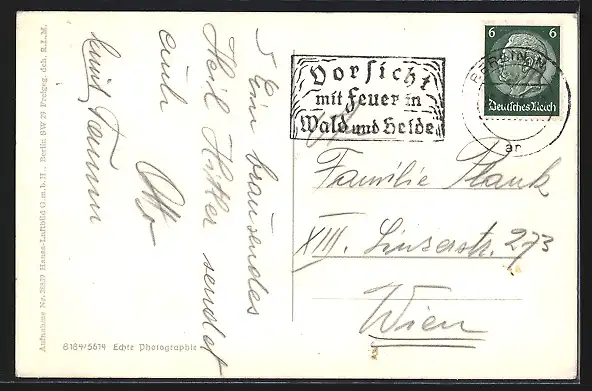 Ein brausendes
Heil Hitler sendet
euch Otto
samt
Aufnahme Nr. Hansa-Luftbild G.m.b.H., Berlin SW 29 Freigeg. dch. R.L.M.
8184/5614 Echte Photographie
Vorsicht
mit Feuer in
Wald und Heide
BERLIN
an
6 6
Deutsches Reich
Familie Plank
XIII. Linzerstr. 273
Wien